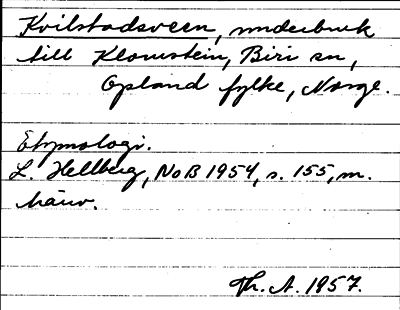 Kvilstadsveen, underbruk
till Klomstein, Biri sn,
Opland fylke, Norge.
Etymologi.
L. Hellberg, NoB 1954, s. 155, m.
hänv.
Th. A. 1957.